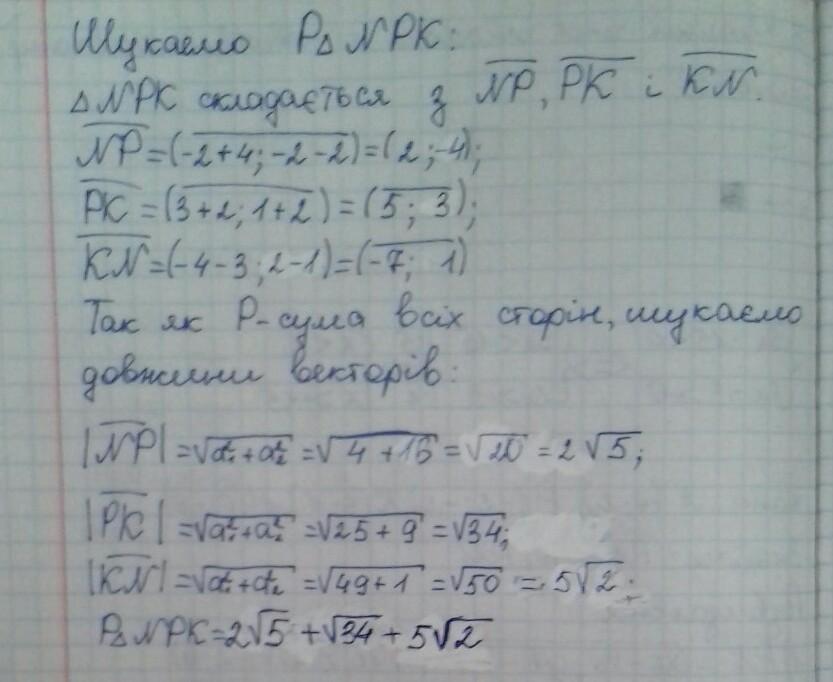 Шукаємо P△NPK:
△NPK складається з NP, PK і KN.
NP=(-2+4;-2-2)=(2;-4);
PK=(3+2;1+2)=(5; 3);
KN=(-4-3;2-1)=(-7; 1)
Так як P-сума всіх сторін, шукаємо
довжини векторів:
|NP|=√a₁²+a₂²=√4+16=√20=2√5;
|PK|=√a₁²+a₂²=√25+9=√34;
|KN|=√a₁²+a₂²=√49+1=√50=5√2;
P△NPK=2√5+√34+5√2